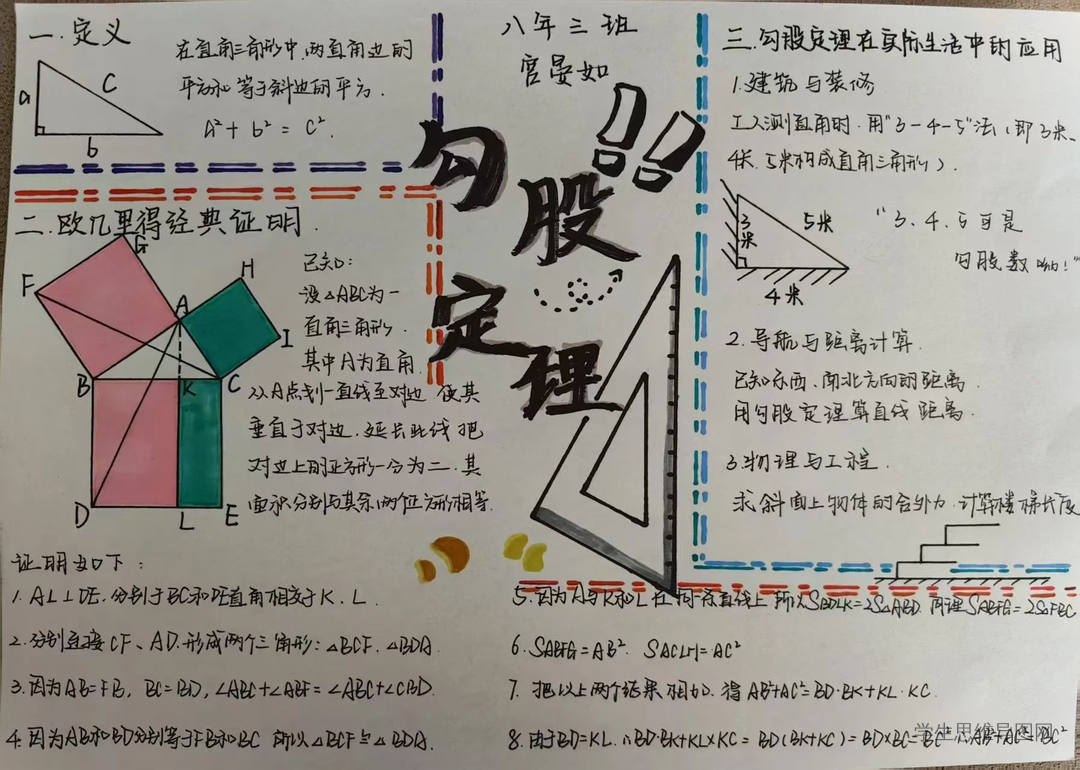 一.定义
a
C
b
在直角三角形中,两直角边的
平方和等于斜边的平方.
a²+b²=c².
八年三班
宫晏如
勾股定理!!
二.欧几里得经典证明.
F
G
A
H
I
B
K
C
D
L
E
已知:
设△ABC为一
直角三角形.
其中A为直角.
从A点划一直线至对边 使其
垂直于对边.延长此线把
对边上的正方形一分为二.其
面积分别与其余两个正方形相等.
证明如下:
1.AL⊥DE.分别于BC和DE直角相交于K.L.
2.分别连接CF、AD.形成两个三角形:△BCF.△BDA.
3.因为AB=FB,BC=BD,∠ABC+∠ABF=∠ABC+∠CBD.
4.因为AB和BD分别等于FB和BC 所以△BCF≌△BDA.
5.因为A与K和L在同一条直线上 所以SBDLK=2S△ABD.同理SABFG=2S△FBC
6.SABFG=AB². SACLH=AC²
7.把以上两个结果相加.得AB²+AC²=BD·BK+KL·KC.
8.由于BD=KL.∴BD·BK+KL×KC=BD(BK+KC)=BD×BC=BC²∴AB²+AC²=BC²
三.勾股定理在实际生活中的应用
1.建筑与装修
工人测直角时.用"3-4-5"法(即3米、
4米.5米构成直角三角形).
3米
5米
4米
"3、4、5可是
勾股数呦!"
2.导航与距离计算.
已知东西、南北方向的距离.
用勾股定理算直线距离.
3.物理与工程.
求斜面上物体的合外力.计算楼梯长度
学生思维导图网